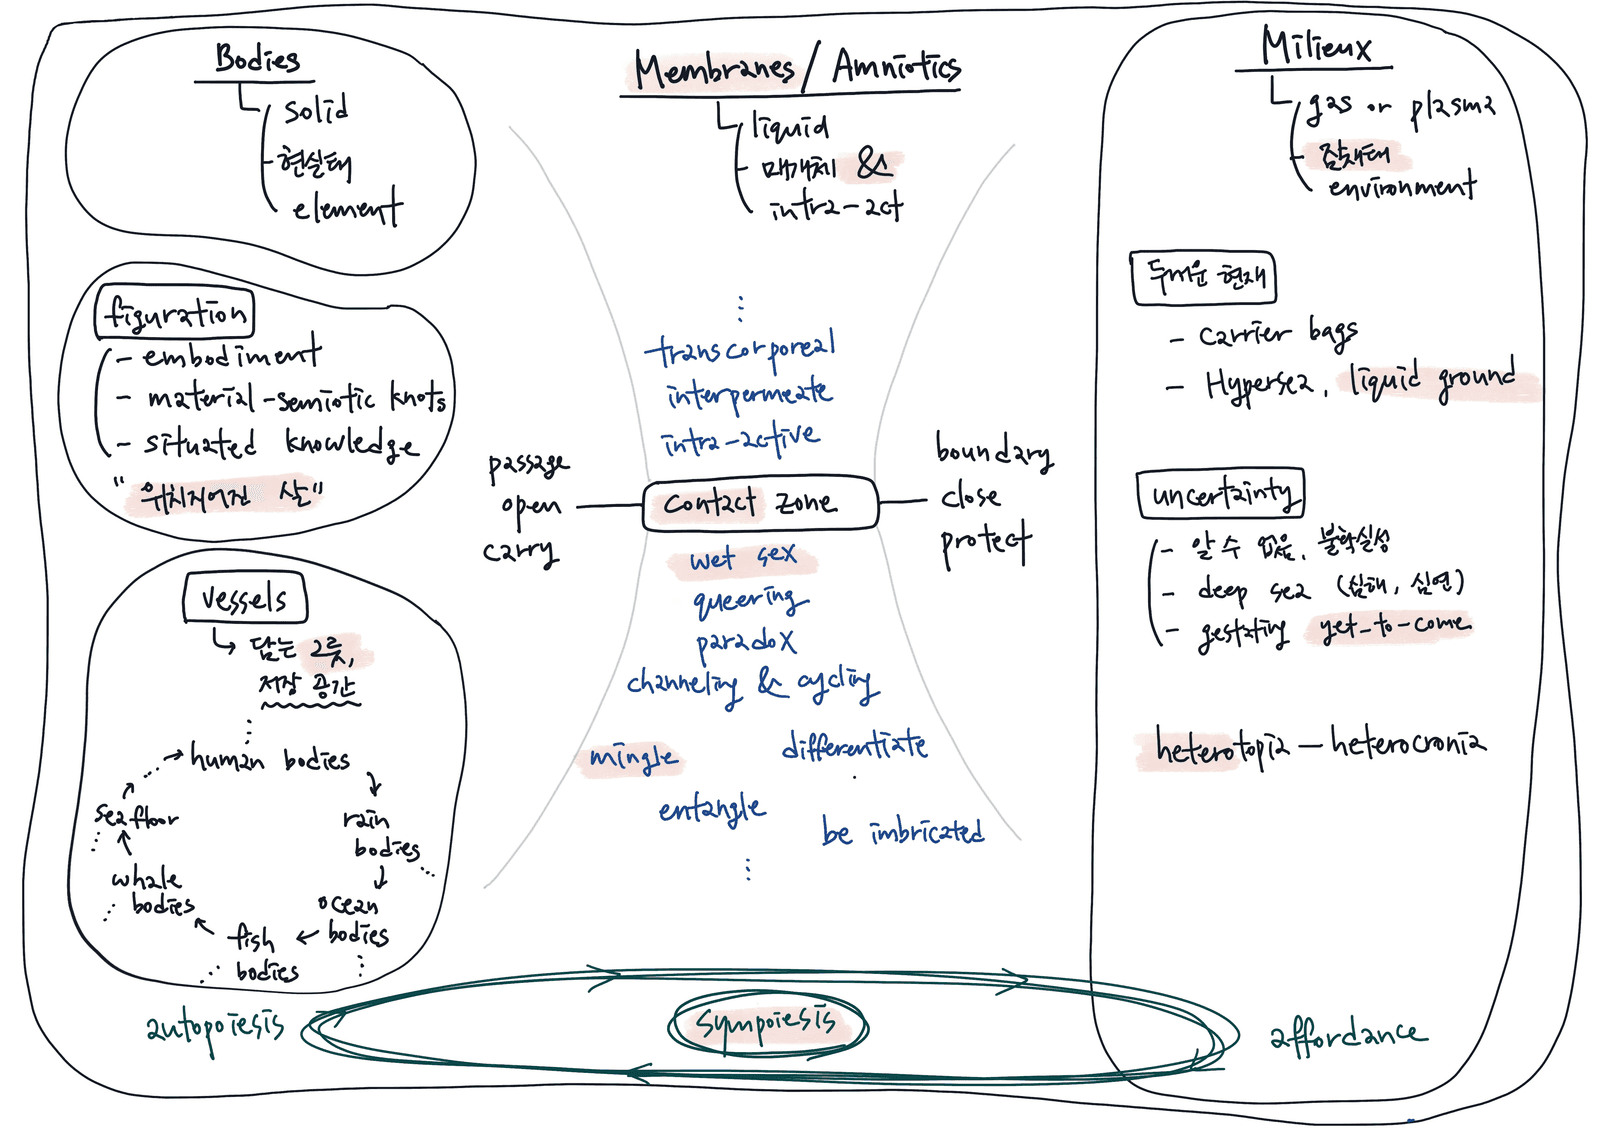 Bodies
solid
현실태
element
figuration
- embodiment
- material-semiotic knots
- situated knowledge
"위치지어진 살"
vessels
담는 그릇,
저장 공간
human bodies
rain
bodies
ocean
bodies
fish
bodies
whale
bodies
seafloor
Membranes / Amniotics
liquid
매개체 &
intra-act
transcorporeal
interpermeate
intra-active
passage
open
carry
contact zone
boundary
close
protect
wet sex
queering
paradox
channeling & cycling
mingle
differentiate
entangle
be imbricated
Milieux
gas or plasma
잠재태
environment
두꺼운 현재
- carrier bags
- Hypersea, liquid ground
uncertainty
- 알 수 없음, 불확실성
- deep sea (심해, 심연)
- gestating yet-to-come
heterotopia — heterocronia
autopoiesis
sympoiesis
affordance